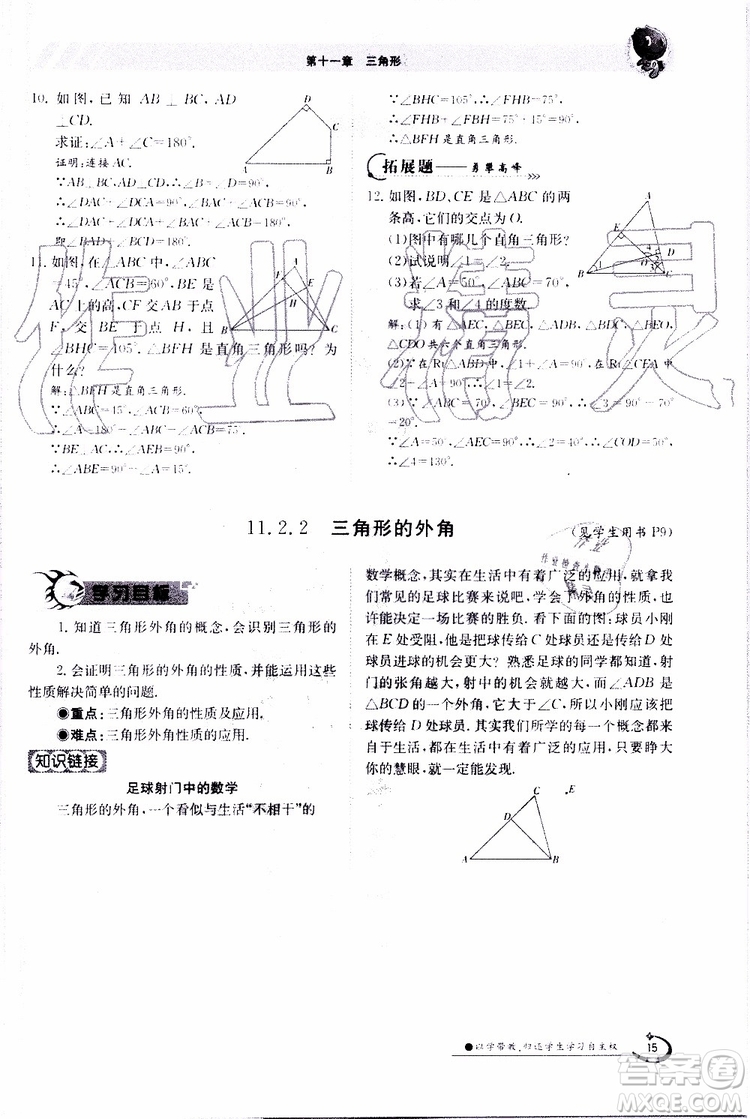 第十一章 三角形
10. 如图,已知 AB⊥BC,AD
⊥CD.
求证:∠A+∠C=180°.
证明:连接AC.
∵∠BAC+∠BCA=90°,
∴∠DAC+∠DCA=90°,
∴∠DAC+∠DCA+∠BAC+∠BCA=180°,
即∠BAD+∠BCD=180°.
D
C
A
B
11. 如图,在△ABC中,∠BAC
=45°,∠ACB=60°,BE是
AC上的高,AF交BC于点
F,交BE于点H,
∠BHC=105°.△BFH是直角三角形吗?为
什么?
解:△BFH是直角三角形.
∵∠BAC=45°,∠ACB=60°,
∴∠ABC=180°-∠A-∠C=75°.
∵BE⊥AC,∴∠AEB=90°.
∴∠ABE=90°-∠A=45°.
∵∠BHC=105°,∴∠FHB=75°.
∴∠FHB+∠FBH=75°+15°=90°.
∴△BFH是直角三角形.
拓展题——勇攀高峰
12. 如图,BD、CE是△ABC的两
条高,它们的交点为O.
(1)图中有哪几个直角三角形?
(2)试说明∠1=∠2.
(3)若∠ABC=70°,∠ACB=70°,
求∠3和∠4的度数.
解:(1)有△AEC,△BEC,△ADB,△BDC,△BEO,
△CDO共六个直角三角形.
(2)∵在Rt△ABD中,∠1+∠A=90°,在Rt△CEA中
∠2+∠A=90°,∴∠1=∠2.
(3)∵∠ABC=70°,∠BEC=90°,∴∠3=90°-70°
=20°.
∵∠AEC=90°,∠2=50°,∴∠COD=50°.
∴∠4=130°.
11.2.2 三角形的外角
(见学生用书P9)
学习目标
1. 知道三角形外角的概念,会识别三角形的
外角.
2. 会证明三角形的外角的性质,并能运用这些
性质解决简单的问题.
●重点:三角形外角的性质及应用.
●难点:三角形外角性质的应用.
知识链接
足球射门中的数学
三角形的外角,一个看似与生活“不相干”的
数学概念,其实在生活中有着广泛的应用,就拿我
们常见的足球比赛来说吧,学会了外角的概念,也
许能决定一场比赛的胜负.看下面的图:球员小刚
在阻截的情况下,是把球传给C球员还是传给D
球员进球的机会更大?熟悉足球的同学都知道,射
门的张角越大,射中的机会越大,所以,可以根据
∠BDC与∠C的大小:∠BDC>∠C,所以小刚应该把
球传给D球员.其实我们所学的每一个概念都与
生活息息相关,在生活中有着广泛的应用,只要睁大
你的慧眼,就一定能发现.
C
E
D
A
B
●以学带教,归还学生学习自主权
15
作业精灵
答案圈
MXQE.COM